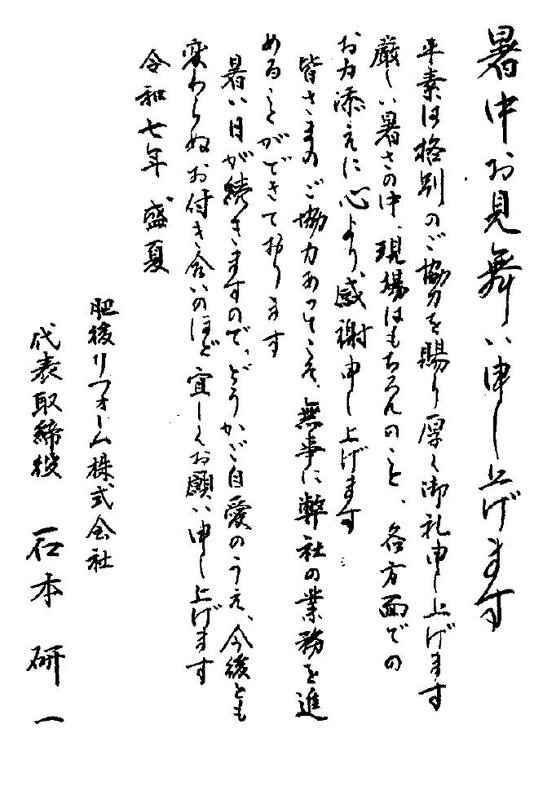 暑中お見舞い申し上げます
平素は格別のご協力を賜り厚く御礼申し上げます
厳しい暑さの中、現場はもちろんのこと、各方面での
お力添えに心より感謝申し上げます
皆さまのご協力あってこそ、無事に弊社の業務を進
めることができております
暑い日が続きますので、どうかご自愛のうえ、今後とも
変わらぬお付き合いのほど宜しくお願い申し上げます
令和七年 盛夏
肥後リフォーム株式会社
代表取締役 石本 研一